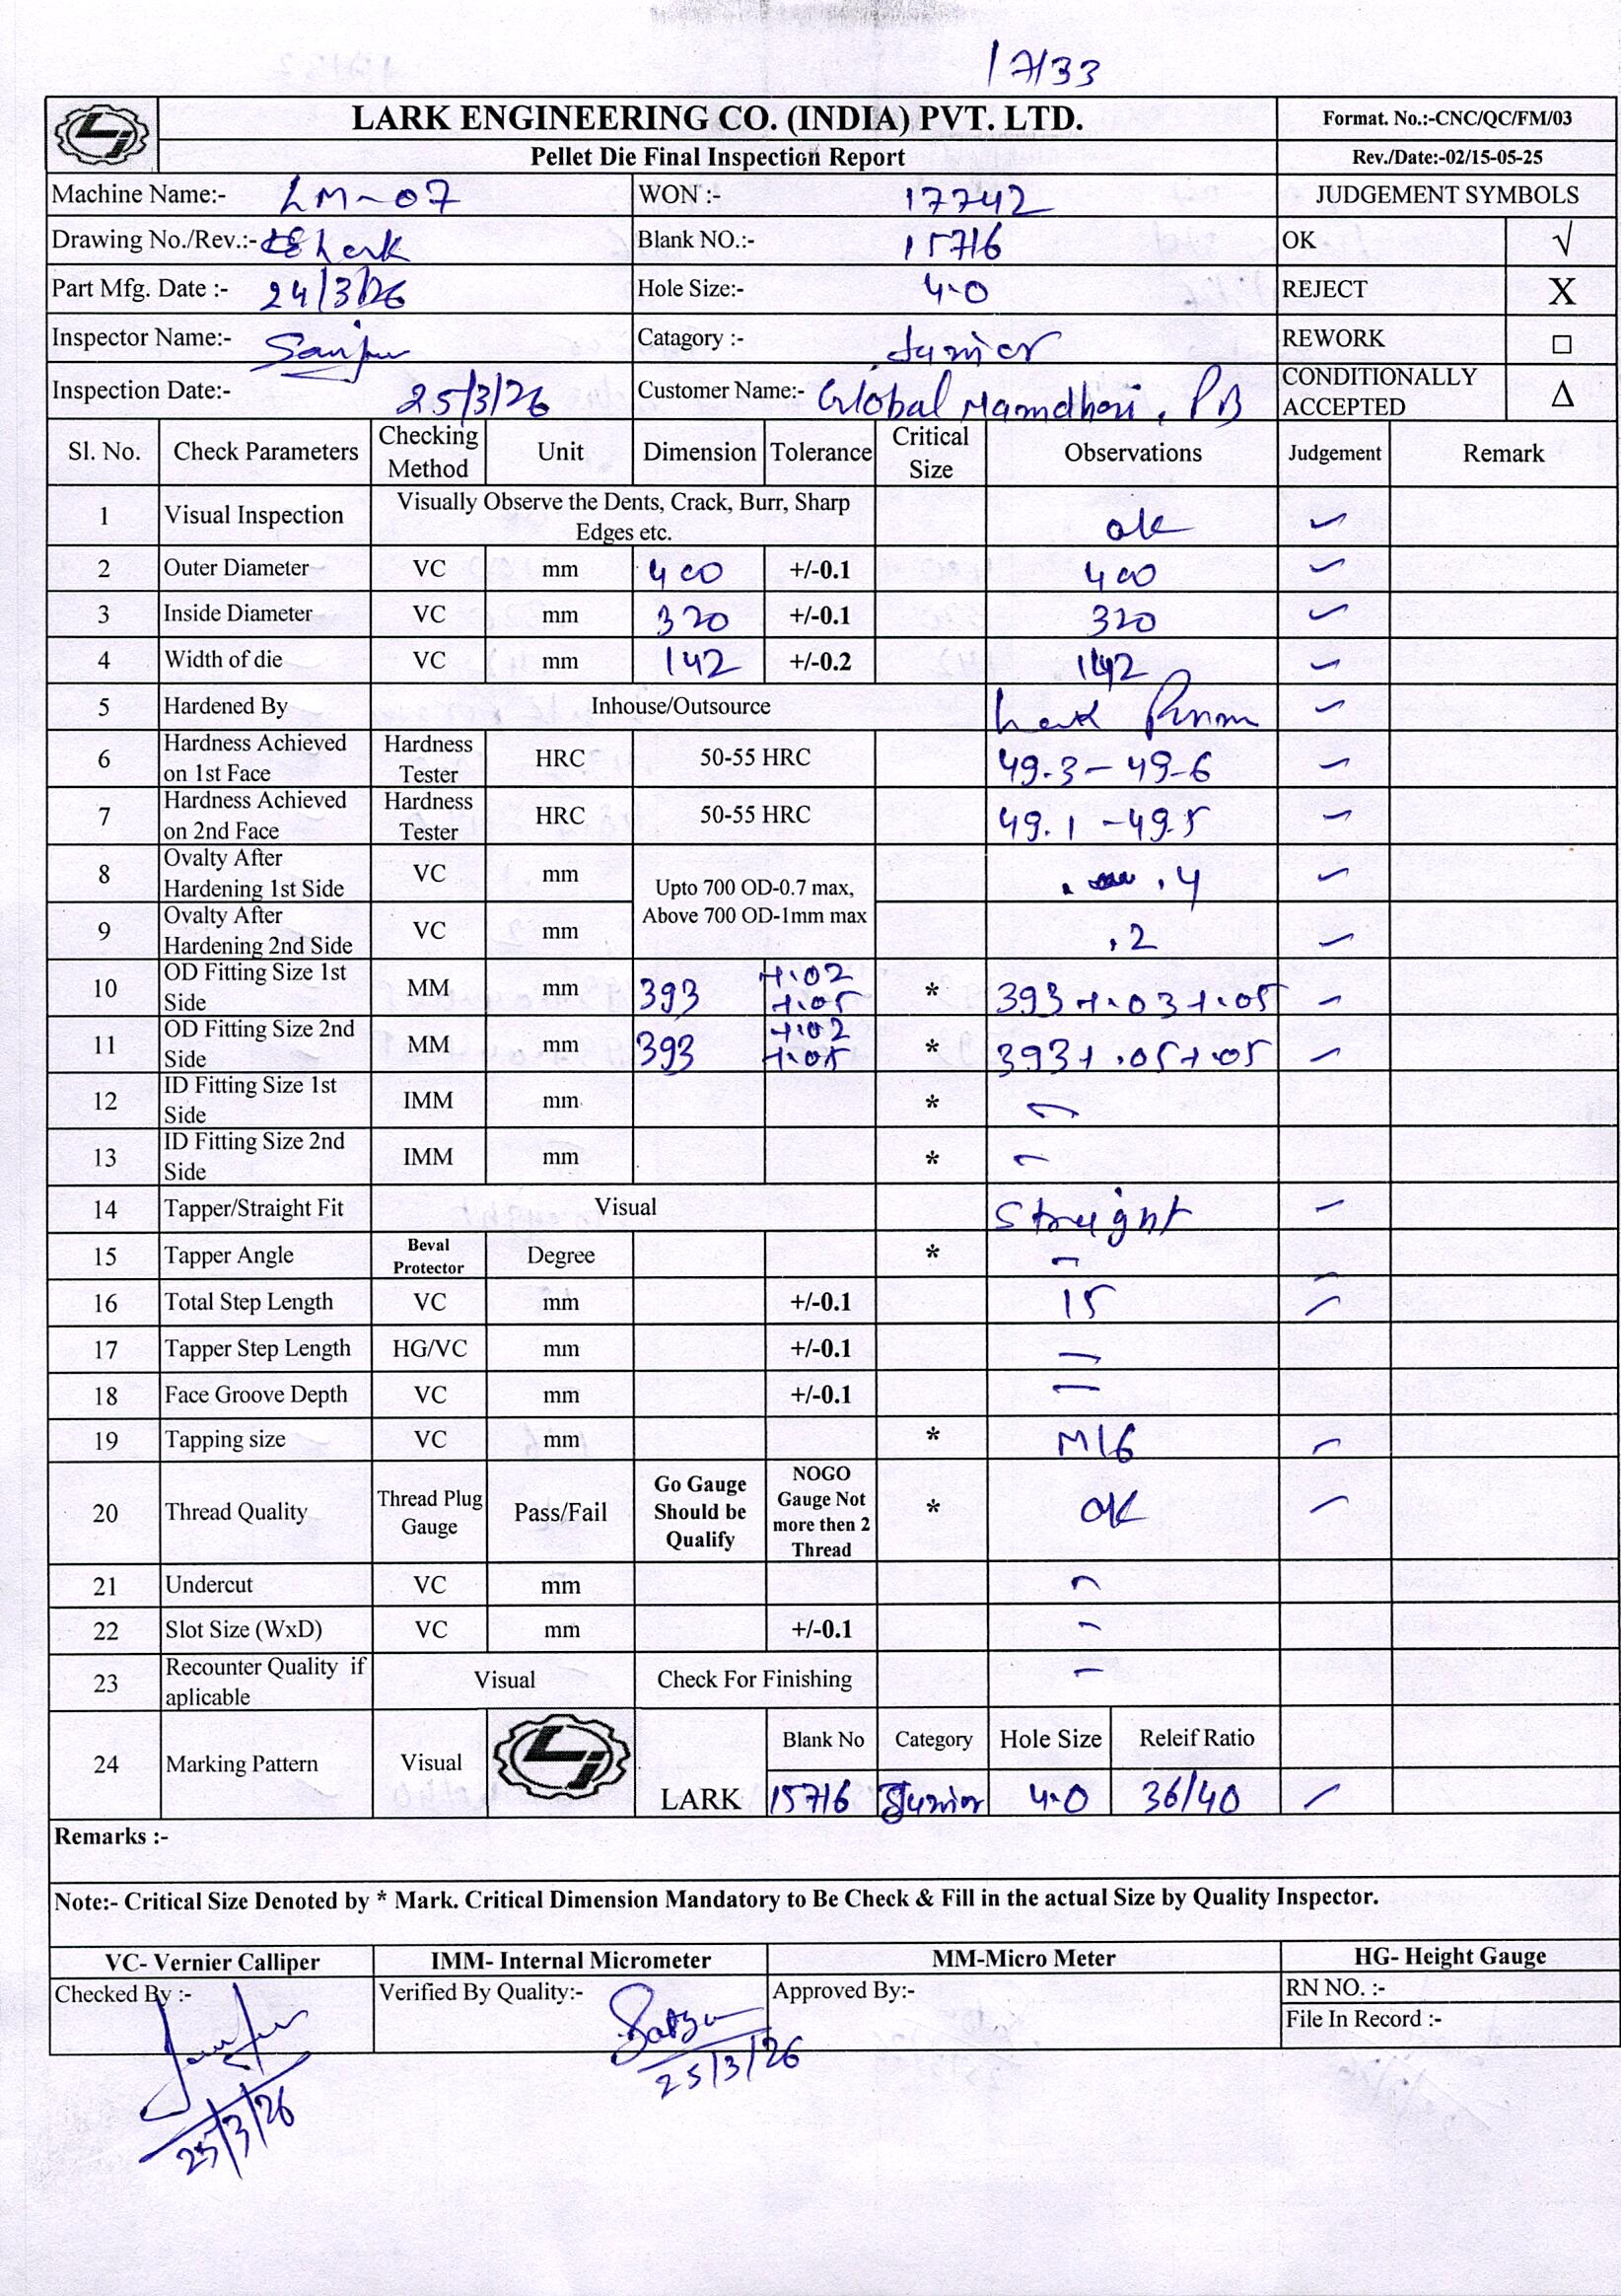 17133
LARK ENGINEERING CO. (INDIA) PVT. LTD.
Format. No.:-CNC/QC/FM/03
Pellet Die Final Inspection Report
Rev./Date:-02/15-05-25
Machine Name:- LM-07 WON :- 17742 JUDGEMENT SYMBOLS
Drawing No./Rev.:- Lark Blank NO.:- 15716 OK √
Part Mfg. Date :- 24/3/26 Hole Size:- 4.0 REJECT X
Inspector Name:- Catagory :- Junior REWORK □
Inspection Date:- 25/3/26 Customer Name:- Global , PB CONDITIONALLY ACCEPTED Δ
Sl. No. Check Parameters Checking Method Unit Dimension Tolerance Critical Size Observations Judgement Remark
1 Visual Inspection Visually Observe the Dents, Crack, Burr, Sharp Edges etc. ok ✓
2 Outer Diameter VC mm 400 +/-0.1 400 ✓
3 Inside Diameter VC mm 320 +/-0.1 320 ✓
4 Width of die VC mm 142 +/-0.2 142 ✓
5 Hardened By Inhouse/Outsource Lark ✓
6 Hardness Achieved on 1st Face Hardness Tester HRC 50-55 HRC 49.3-49.6 ✓
7 Hardness Achieved on 2nd Face Hardness Tester HRC 50-55 HRC 49.1-49.5 ✓
8 Ovalty After Hardening 1st Side VC mm Upto 700 OD-0.7 max, Above 700 OD-1mm max .4 ✓
9 Ovalty After Hardening 2nd Side VC mm .2 ✓
10 OD Fitting Size 1st Side MM mm 393 +.02 +.05 * 393+.03+.05 ✓
11 OD Fitting Size 2nd Side MM mm 393 +.02 +.05 * 393+.05+.05 ✓
12 ID Fitting Size 1st Side IMM mm * -
13 ID Fitting Size 2nd Side IMM mm * -
14 Tapper/Straight Fit Visual Straight ✓
15 Tapper Angle Beval Protector Degree * -
16 Total Step Length VC mm +/-0.1 15 ✓
17 Tapper Step Length HG/VC mm +/-0.1 -
18 Face Groove Depth VC mm +/-0.1 -
19 Tapping size VC mm * M16 ✓
20 Thread Quality Thread Plug Gauge Pass/Fail Go Gauge Should be Qualify NOGO Gauge Not more then 2 Thread * OK ✓
21 Undercut VC mm -
22 Slot Size (WxD) VC mm +/-0.1 -
23 Recounter Quality if aplicable Visual Check For Finishing -
24 Marking Pattern Visual LARK Blank No Category Hole Size Releif Ratio
15716 Junior 4.0 36/40 ✓
Remarks :-
Note:- Critical Size Denoted by * Mark. Critical Dimension Mandatory to Be Check & Fill in the actual Size by Quality Inspector.
VC- Vernier Calliper IMM- Internal Micrometer MM-Micro Meter HG- Height Gauge
Checked By :- Verified By Quality:- Approved By:- RN NO. :-
File In Record :-
25/3/26
25/3/26